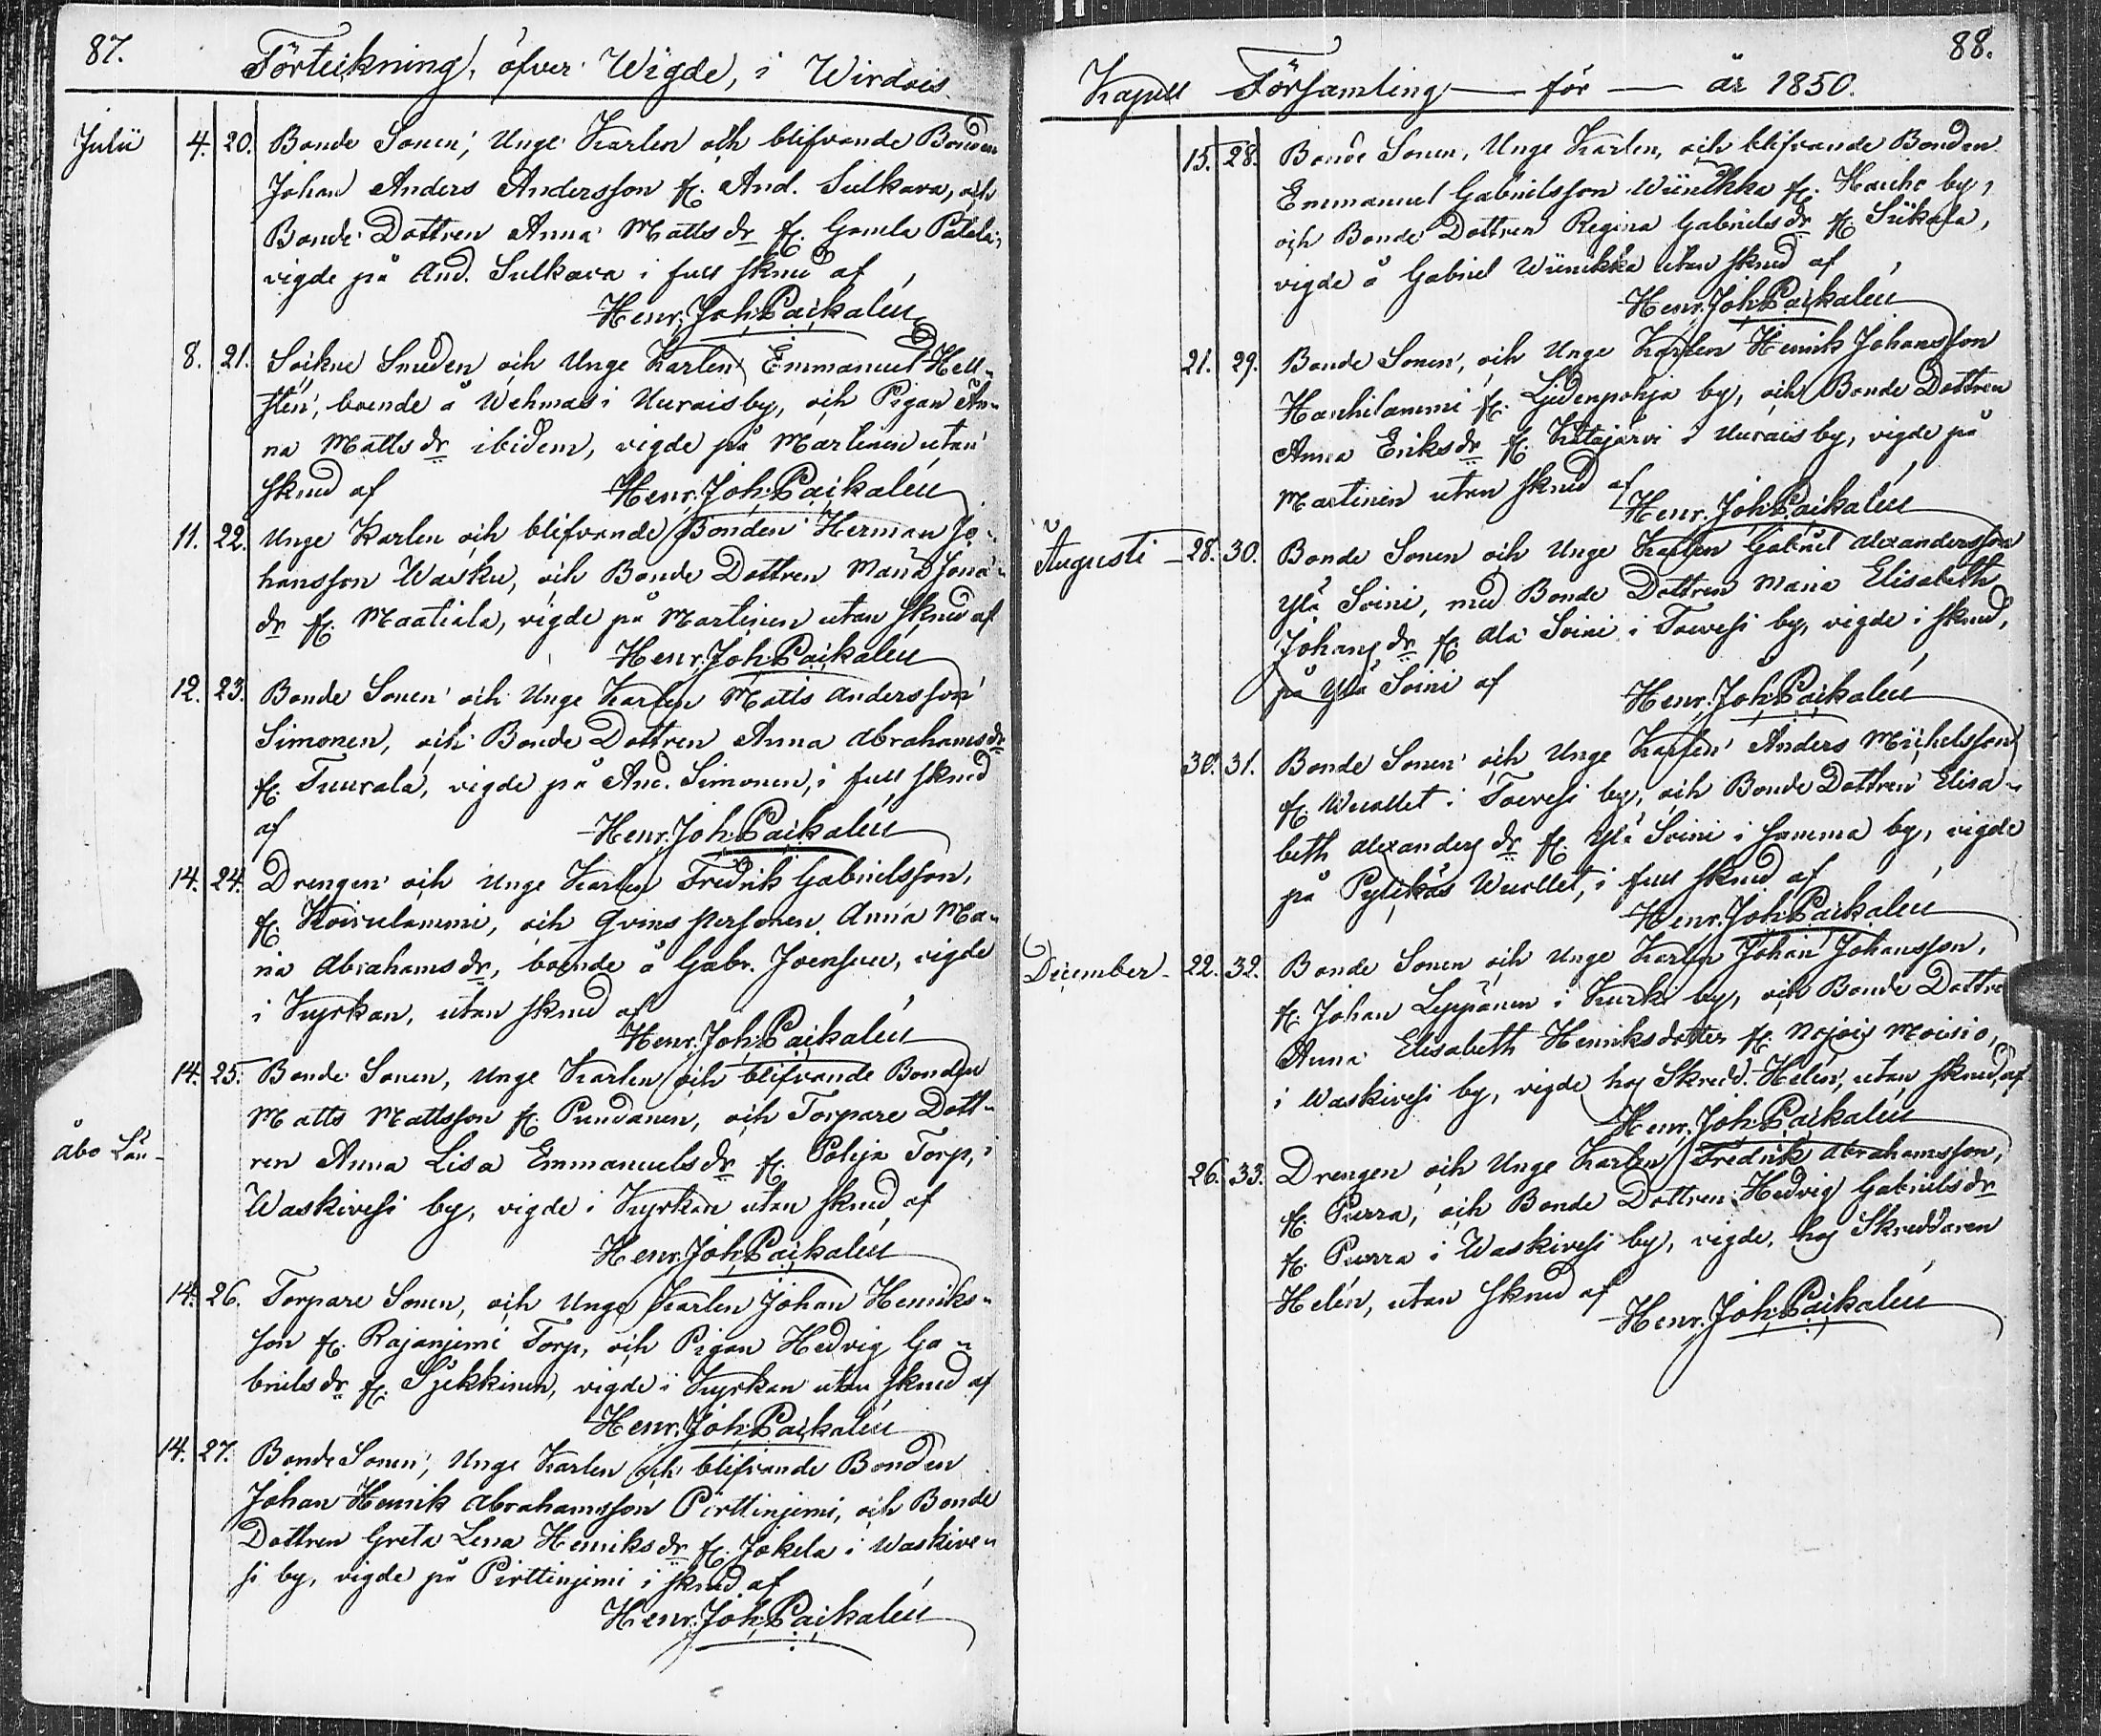 87.
Förteikning, öfver Wigde, i Wirdois
Julii 4. 20. Bonde Sonen, Unge Karlen och blifvande Bonden
Johan Anders Andersson fr. And. Sulkava, och
Bonde Dottren Anna Matts dr fr. Gamla
vigde på And. Sulkava i full skrud af
Henr. Joh. Paikalén
8. 21. Sockne Smeden och Unge Karlen Emmanuel Hell-
stén, boende å Wehmas i Uurais by, och Pigan An-
na Matts dr ibidem, vigde på Martinen utan
skrud af Henr. Joh. Paikalén
11. 22. Unge Karlen och blifvande Bonden Herman Jo-
hansson Wasku, och Bonde Dottren Maria
dr fr. Maatiala, vigde på Martinen utan skrud af
Henr. Joh. Paikalén
12. 23. Bonde Sonen och Unge Karlen Matts Andersson
Simonen, och Bonde Dottren Anna Abrahams dr
fr. Tuurala, vigde på And. Simonen, i full skrud
af Henr. Joh. Paikalén
14. 24. Drengen och Unge Karlen Fredrik Gabrielsson,
fr. Koivulammi, och Qvins personen Anna Ma-
ria Abrahams dr, boende å Gabr. Joensuu, vigde
i Kyrkan, utan skrud af
Henr. Joh. Paikalén
14. 25. Bonde Sonen, Unge Karlen och blifvande Bonden
Matts Mattsson fr. Pundanen, och Torpare Dott-
åbo Län ren Anna Lisa Emmanuels dr fr. Pohja Torp, i
Waskivesi by, vigde i Kyrkan utan skrud af
Henr. Joh. Paikalén
14. 26. Torpare Sonen, och Unge Karlen Johan Henriks-
son fr. Rajaniemi Torp, och Pigan Hedvig Ga-
briels dr fr. vigde i Kyrkan utan skrud af
Henr. Joh. Paikalén
14. 27. Bonde Sonen, Unge Karlen och blifvande Bonden
Johan Henrik Abrahamsson Pirttinjemi, och Bonde
Dottren Greta Lena Henriks dr fr. Jokela i Waskive-
si by, vigde på Pirttinjemi i skrud af
Henr. Joh. Paikalén
88.
Kapell Församling — för — år 1850.
15. 28. Bonde Sonen, Unge Karlen, och blifvande Bonden
Emmanuel Gabrielsson Wiinikka fr. Hauho by,
och Bonde Dottren Regina Gabriels dr fr.
vigde å Gabriel Wiinikka utan skrud af
Henr. Joh. Paikalén
21. 29. Bonde Sonen, och Unge Karlen Henrik Johansson
Hauhilammi fr. Lidenpohja by, och Bonde Dottren
Anna Eriks dr fr. Katajärvi i Uurais by, vigde på
Martinen utan skrud af
Henr. Joh. Paikalén
Augusti 28. 30. Bonde Sonen och Unge Karlen Gabriel Alexandersson
Ylä Soini, med Bonde Dottren Maria Elisabeth
Johans dr fr. Ala Soini i Toivesi by, vigde i skrud,
på Ylä Soini af
Henr. Joh. Paikalén
30. 31. Bonde Sonen och Unge Karlen Anders Michelsson
fr. Wuollet i Toivesi by, och Bonde Dottren Elisa-
beth Alexanders dr fr. Ylä Soini i samma by, vigde
på Wuollet, i full skrud af
Henr. Joh. Paikalén
December 22. 32. Bonde Sonen och Unge Karlen Johan Johansson,
fr. Johan Leppänen i Kurki by, och Bonde Dottren
Anna Elisabeth Henriksdotter fr. Moisio,
i Waskivesi by, vigde hos Skredd. Helén, utan skrud, af
Henr. Joh. Paikalén
26. 33. Drengen och Unge Karlen Fredrik Abrahamsson,
fr. Purra, och Bonde Dottren Hedvig Gabriels dr
fr. Purra i Waskivesi by, vigde, hos Skreddaren
Helén, utan skrud af
Henr. Joh. Paikalén